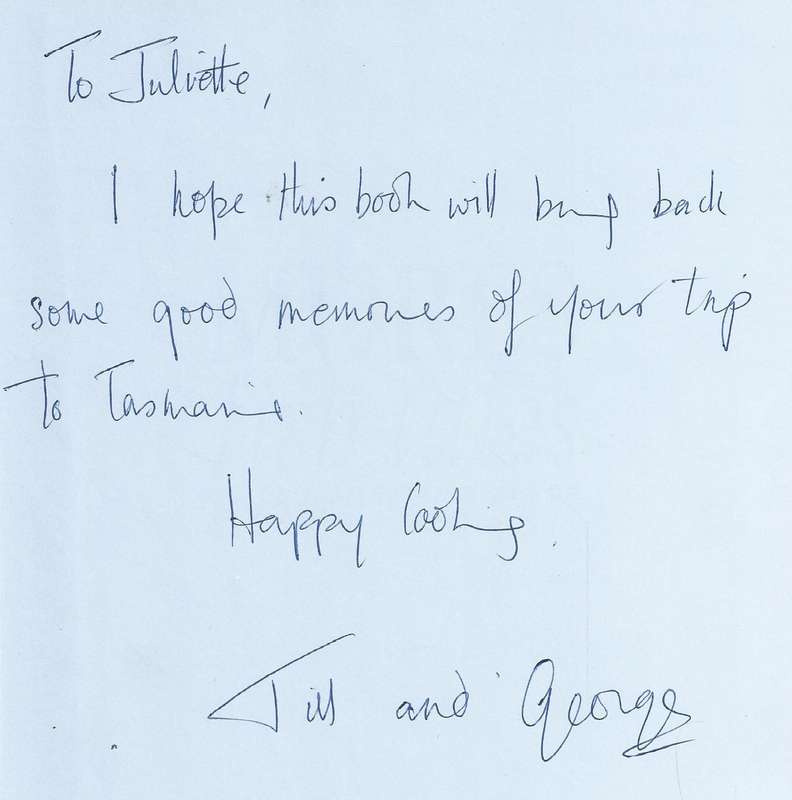 To Juliette,
I hope this book will bring back
some good memories of your trip
to Tasmania.
Happy Cooking.
Jill and George